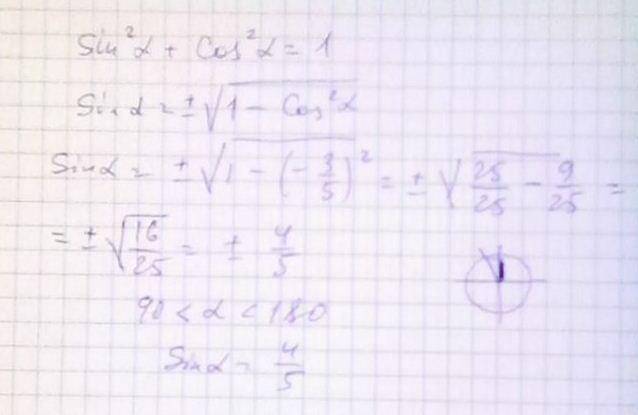 Sin²α + Cos²α = 1
Sin α = ±√(1 − Cos²α)
Sin α = ±√(1 − (−3/5)²) = ±√(25/25 − 9/25) =
= ±√(16/25) = ± 4/5
90 < α < 180
Sin α = 4/5